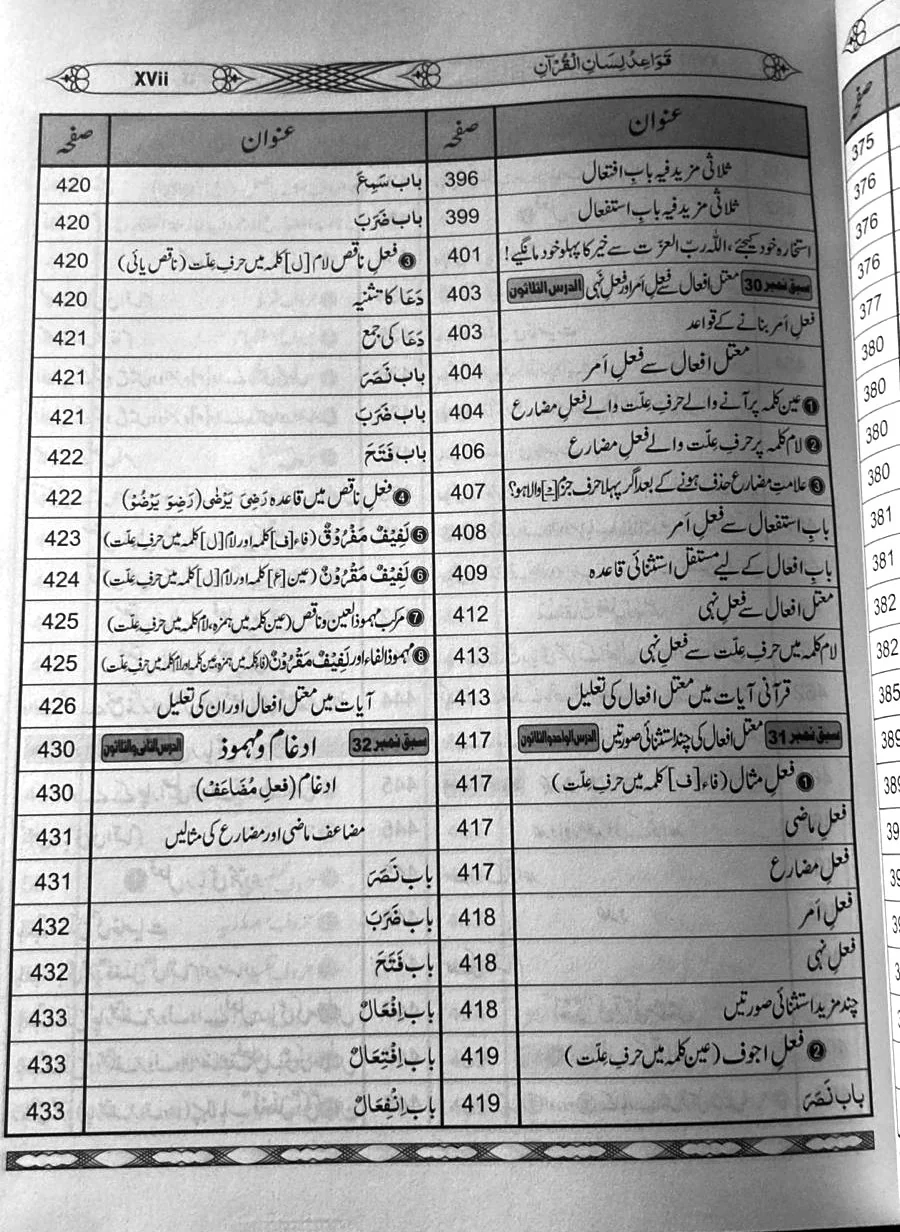 قَوَاعِدُ لِسَانِ الْقُرْآنِ
XVii
عنوان صفحہ
ثلاثی مزید فیہ بابِ افتعال 396
ثلاثی مزید فیہ بابِ استفعال 399
استخارہ خود کیجئے، اللہ ربّ العزت سے خیر کا پہلو خود مانگیے! 401
سبق نمبر 30 معتل افعال سے فعلِ اَمر اور فعلِ نہی الدرس الثلاثون 403
فعلِ اَمر بنانے کے قواعد 403
معتل افعال سے فعلِ اَمر 404
❶ عین کلمہ پر آنے والے حرفِ علّت والے فعلِ مضارع 404
❷ لام کلمہ پر حرفِ علّت والے فعلِ مضارع 406
❸ علامتِ مضارع حذف ہونے کے بعد اگر پہلا حرف جزم [ـْ] والا ہو؟ 407
بابِ استفعال سے فعلِ اَمر 408
بابِ افعال کے لیے مستقل استثنائی قاعدہ 409
معتل افعال سے فعلِ نہی 412
لام کلمہ میں حرفِ علّت سے فعلِ نہی 413
قرآنی آیات میں معتل افعال کی تعلیل 413
سبق نمبر 31 معتل افعال کی چند استثنائی صورتیں الدرس الواحد والثلاثون 417
❶ فعلِ مثال (فاء [ف] کلمہ میں حرفِ علّت) 417
فعلِ ماضی 417
فعلِ مضارع 417
فعلِ اَمر 418
فعلِ نہی 418
چند مزید استثنائی صورتیں 418
❷ فعلِ اجوف (عین کلمہ میں حرفِ علّت) 419
باب نَصَرَ 419
عنوان صفحہ
باب سَمِعَ 420
باب ضَرَبَ 420
❸ فعلِ ناقص لام [ل] کلمہ میں حرفِ علّت (ناقص یائی) 420
دَعَا کا تثنیہ 420
دَعَا کی جمع 421
باب نَصَرَ 421
باب ضَرَبَ 421
باب فَتَحَ 422
❹ فعلِ ناقص میں قاعدہ رَضِیَ یَرْضٰی (رَضِوَ یَرْضُوْ) 422
❺ لَفِیْفٌ مَفْرُوْقٌ (فاء [ف] کلمہ اور لام [ل] کلمہ میں حرفِ علّت) 423
❻ لَفِیْفٌ مَقْرُوْنٌ (عین [ع] کلمہ اور لام [ل] کلمہ میں حرفِ علّت) 424
❼ مرکب مہموذ العین و ناقص (عین کلمہ میں ہمزہ، لام کلمہ میں حرفِ علّت) 425
❽ مہموذ الفاء اور لَفِیْفٌ مَقْرُوْنٌ (فاء کلمہ میں ہمزہ، عین کلمہ اور لام کلمہ میں حرفِ علّت) 425
آیات میں معتل افعال اور ان کی تعلیل 426
سبق نمبر 32 ادغام و مہموذ الدرس الثانی والثلاثون 430
ادغام (فعلِ مُضَاعَفْ) 430
مضاعف ماضی اور مضارع کی مثالیں 431
باب نَصَرَ 431
باب ضَرَبَ 432
باب فَتَحَ 432
باب اِفْعَالٌ 433
باب اِفْتِعَالٌ 433
باب اِنْفِعَالٌ 433
صفحہ
375
376
376
376
377
380
380
380
380
381
381
382
382
385